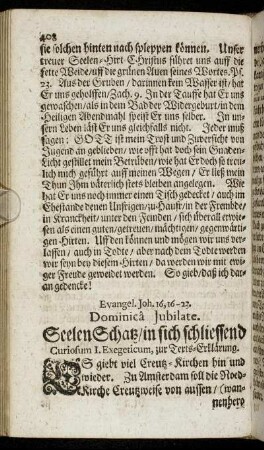 408
sie solchen hinten nach schleppen können. Unser
treuer Seelen-Hirt Christus führet uns auff die
fette Weide/ uff die grünen Auen seines Wortes. Ps.
23. Aus der Gruben/ darinnen kein Wasser ist/ hat
Er uns geholffen/ Zach. 9. In der Tauffe hat Er uns
gewaschen/ als in dem Bad der Widergeburt/ in dem
Heiligen Abendmahl speist Er uns selber. In un-
sern Leben läst Er uns gleichfalls nicht. Jeder muß
sagen: GOTT ist mein Trost und Zuversicht von
Jugend an geblieben/ wie offt hat doch sein Gnaden-
Licht gestillet mein Betrüben/ wie hat Er doch so treu-
lich mich geführt auff meinen Wegen/ Er ließ mein
Thun Ihm väterlich stets bleiben angelegen. Wie
hat Er uns noch immer einen Tisch gedecket/ auch im
Ehestande denen Unsrigen/ zu Hauß/ in der Frembde/
in Kranckheit/ unter den Feinden/ sich überall erwie-
sen als einen guten/ getreuen/ mächtigen/ gegenwär-
tigen-Hirten. Uff den können und mögen wir uns ver-
lassen/ auch in Todte/ aber nach dem Todte werden
wir seyn bey diesem Hirten/ da werden wir mit ewi-
ger Freude geweidet werden. So gieb/ daß ich dar-
an gedencke!
Evangel. Joh. 16, 16-23.
Dominicâ Jubilate.
Seelen Schatz/ in sich schliessend
Curiosum I. Exegeticum, zur Texts-Erklärung.
ES giebt viel Creutz-Kirchen hin und
wieder. Zu Amsterdam soll die Noed-
Kirche Creutzweise von aussen/ (wan-
nenhero